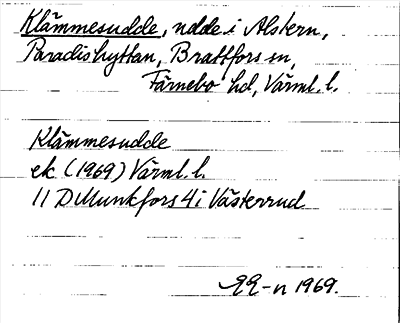 Klämmesudde, udde i Alstern,
Paradishyttan, Brattfors sn,
Färnebo hd, Värml. l.
Klämmesudde
ek. (1969) Värml. l.
11 D Munkfors 4 i Västerrud
1969.